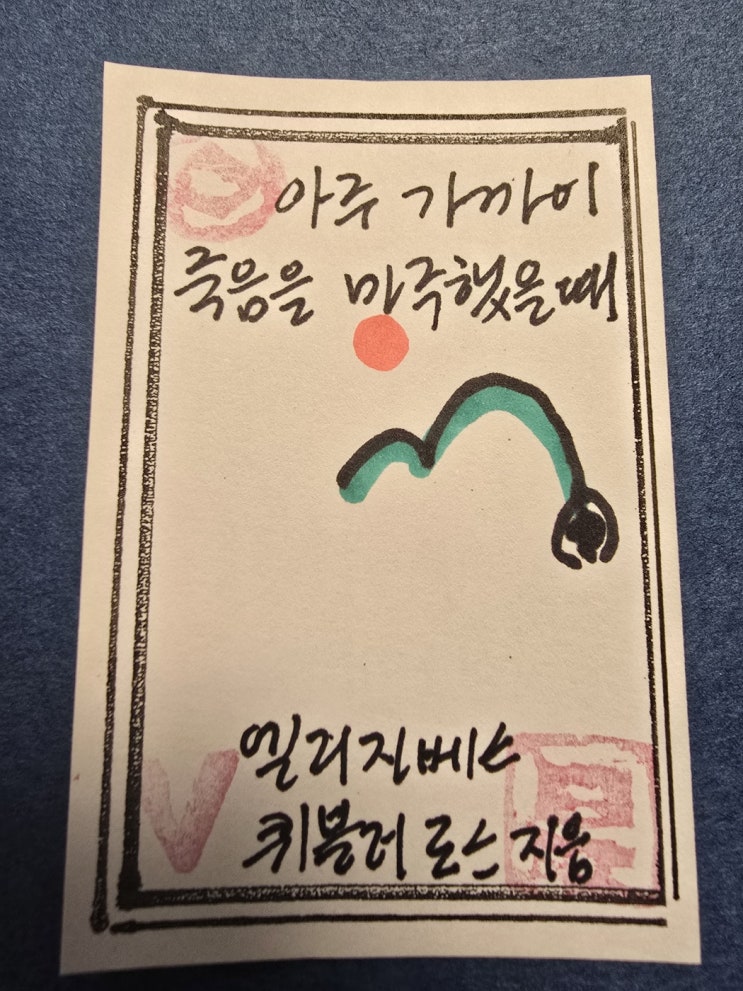 아주 가까이
죽음을 마주했을때
엘리자베스
퀴블러 로스 지음